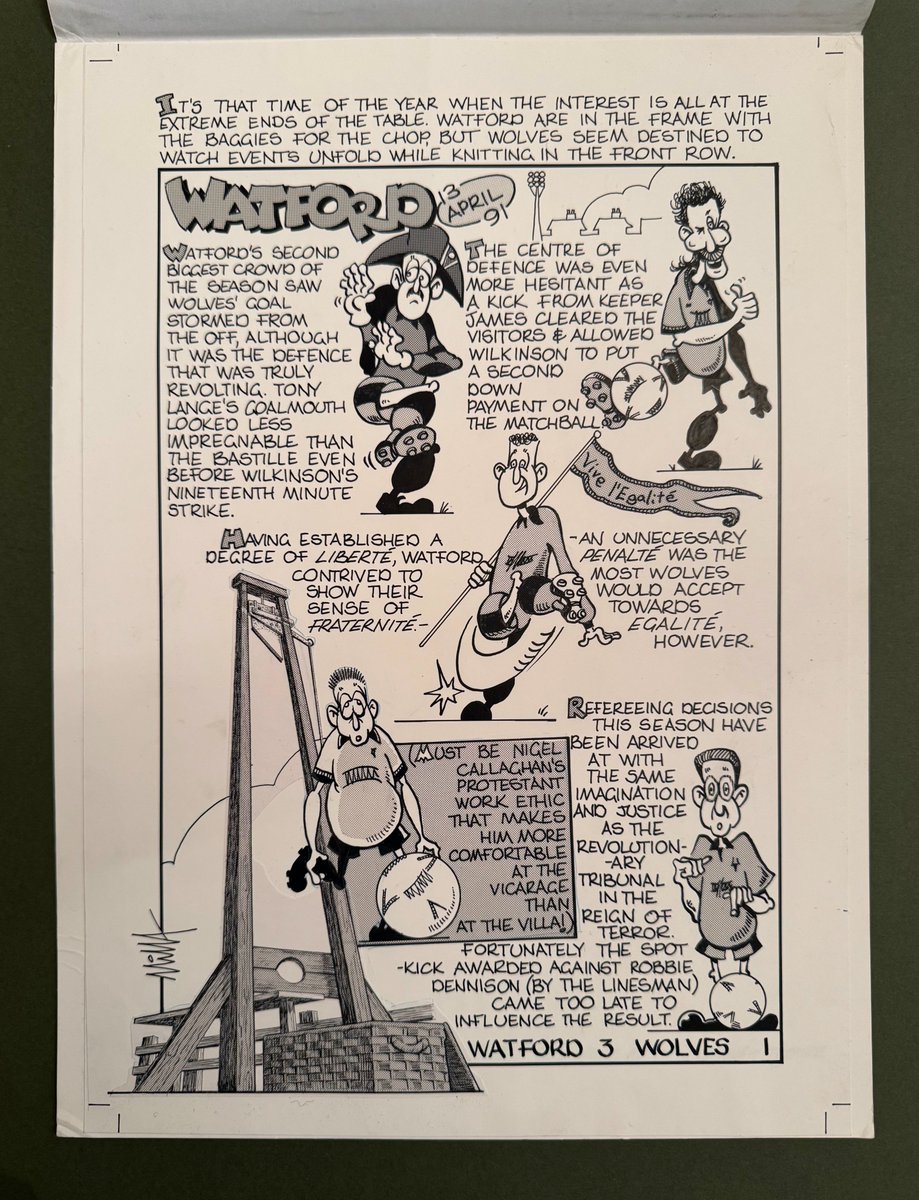 IT'S THAT TIME OF THE YEAR WHEN THE INTEREST IS ALL AT THE
EXTREME ENDS OF THE TABLE. WATFORD ARE IN THE FRAME WITH
THE BAGGIES FOR THE CHOP, BUT WOLVES SEEM DESTINED TO
WATCH EVENTS UNFOLD WHILE KNITTING IN THE FRONT ROW.
WATFORD
13
APRIL
91
WATFORD'S SECOND
BIGGEST CROWD OF
THE SEASON SAW
WOLVES' GOAL
STORMED FROM
THE OFF, ALTHOUGH
IT WAS THE DEFENCE
THAT WAS TRULY
REVOLTING. TONY
LANGE'S GOALMOUTH
LOOKED LESS
IMPREGNABLE THAN
THE BASTILLE EVEN
BEFORE WILKINSON'S
NINETEENTH MINUTE
STRIKE.
THE CENTRE OF
DEFENCE WAS EVEN
MORE HESITANT AS
A KICK FROM KEEPER
JAMES CLEARED THE
VISITORS & ALLOWED
WILKINSON TO PUT
A SECOND
DOWN
PAYMENT ON
THE MATCHBALL.
Vive l'Egalité
HAVING ESTABLISHED A
DEGREE OF LIBERTÉ, WATFORD
CONTRIVED TO
SHOW THEIR
SENSE OF
FRATERNITÉ.-
-AN UNNECESSARY
PENALTÉ WAS THE
MOST WOLVES
WOULD ACCEPT
TOWARDS
EGALITÉ,
HOWEVER.
(MUST BE NIGEL
CALLAGHAN'S
PROTESTANT
WORK ETHIC
THAT MAKES
HIM MORE
COMFORTABLE
AT THE
VICARAGE
THAN
AT THE VILLA!)
REFEREEING DECISIONS
THIS SEASON HAVE
BEEN ARRIVED
AT WITH
THE SAME
IMAGINATION
AND JUSTICE
AS THE
REVOLUTION-
-ARY
TRIBUNAL
IN THE
REIGN OF
TERROR.
FORTUNATELY THE SPOT
-KICK AWARDED AGAINST ROBBIE
DENNISON (BY THE LINESMAN)
CAME TOO LATE TO
INFLUENCE THE RESULT.
WATFORD 3 WOLVES 1